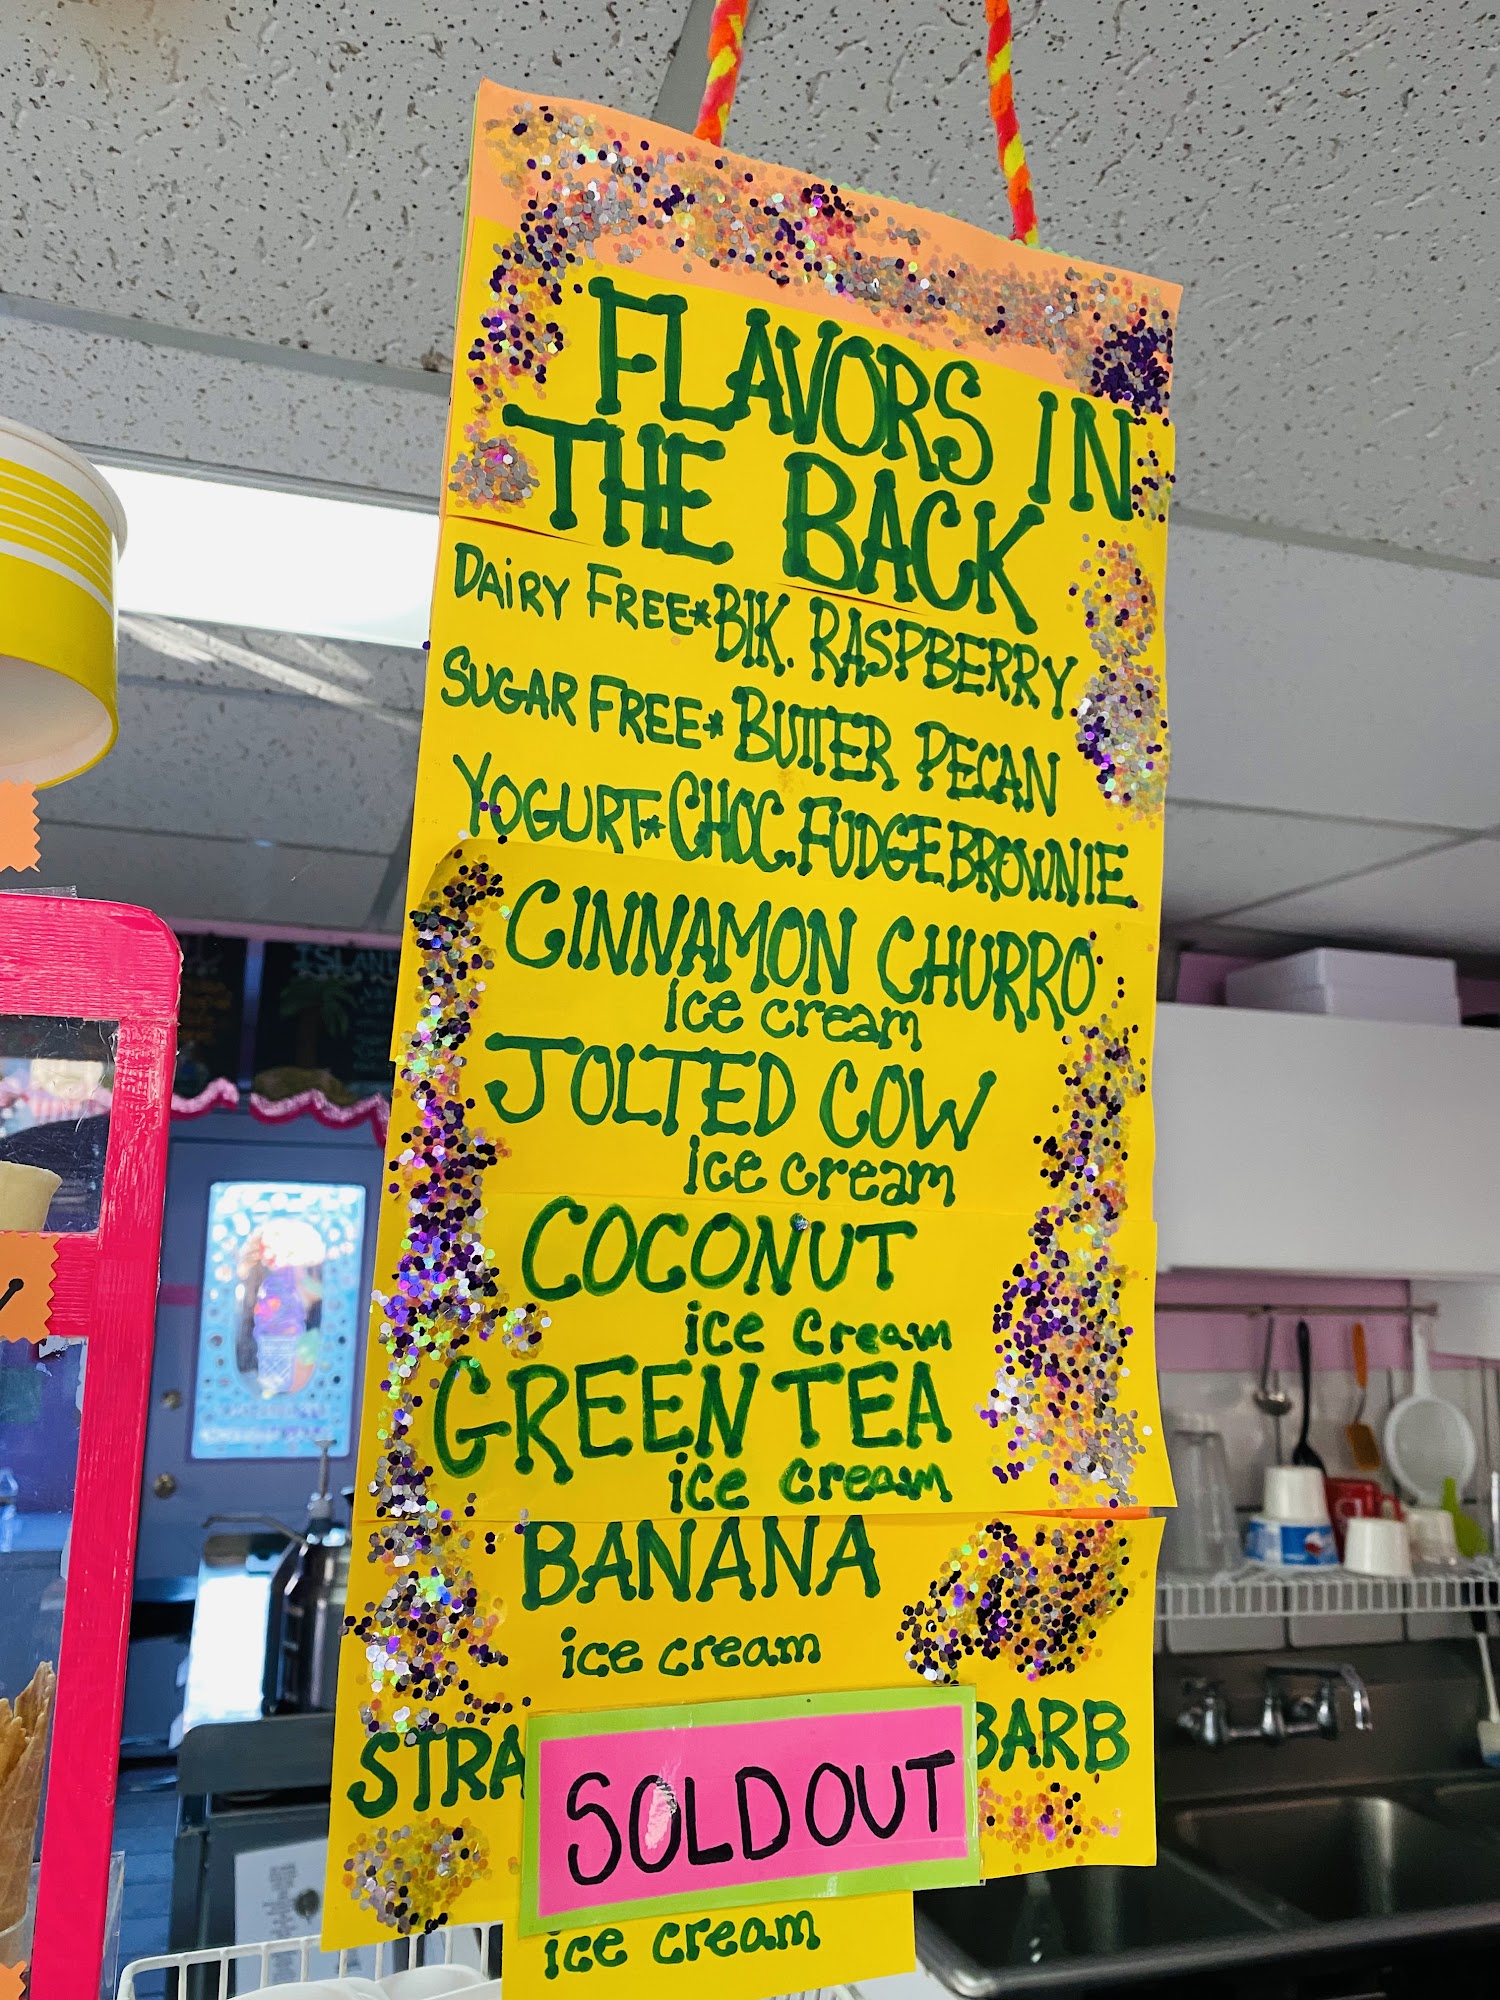 FLAVORS IN
THE BACK
DAiRY FREE*BlK. RASPBERRY
SUGAR FREE* BUTTER PECAN
YOGURT*CHOC. FUDGE BROWNIE
CINNAMON CHURRO
ice cream
JOLTED COW
ice cream
COCONUT
ice cream
GREEN TEA
ice cream
BANANA
ice cream
STRA BARB
SOLD OUT
ice cream
ISLAND